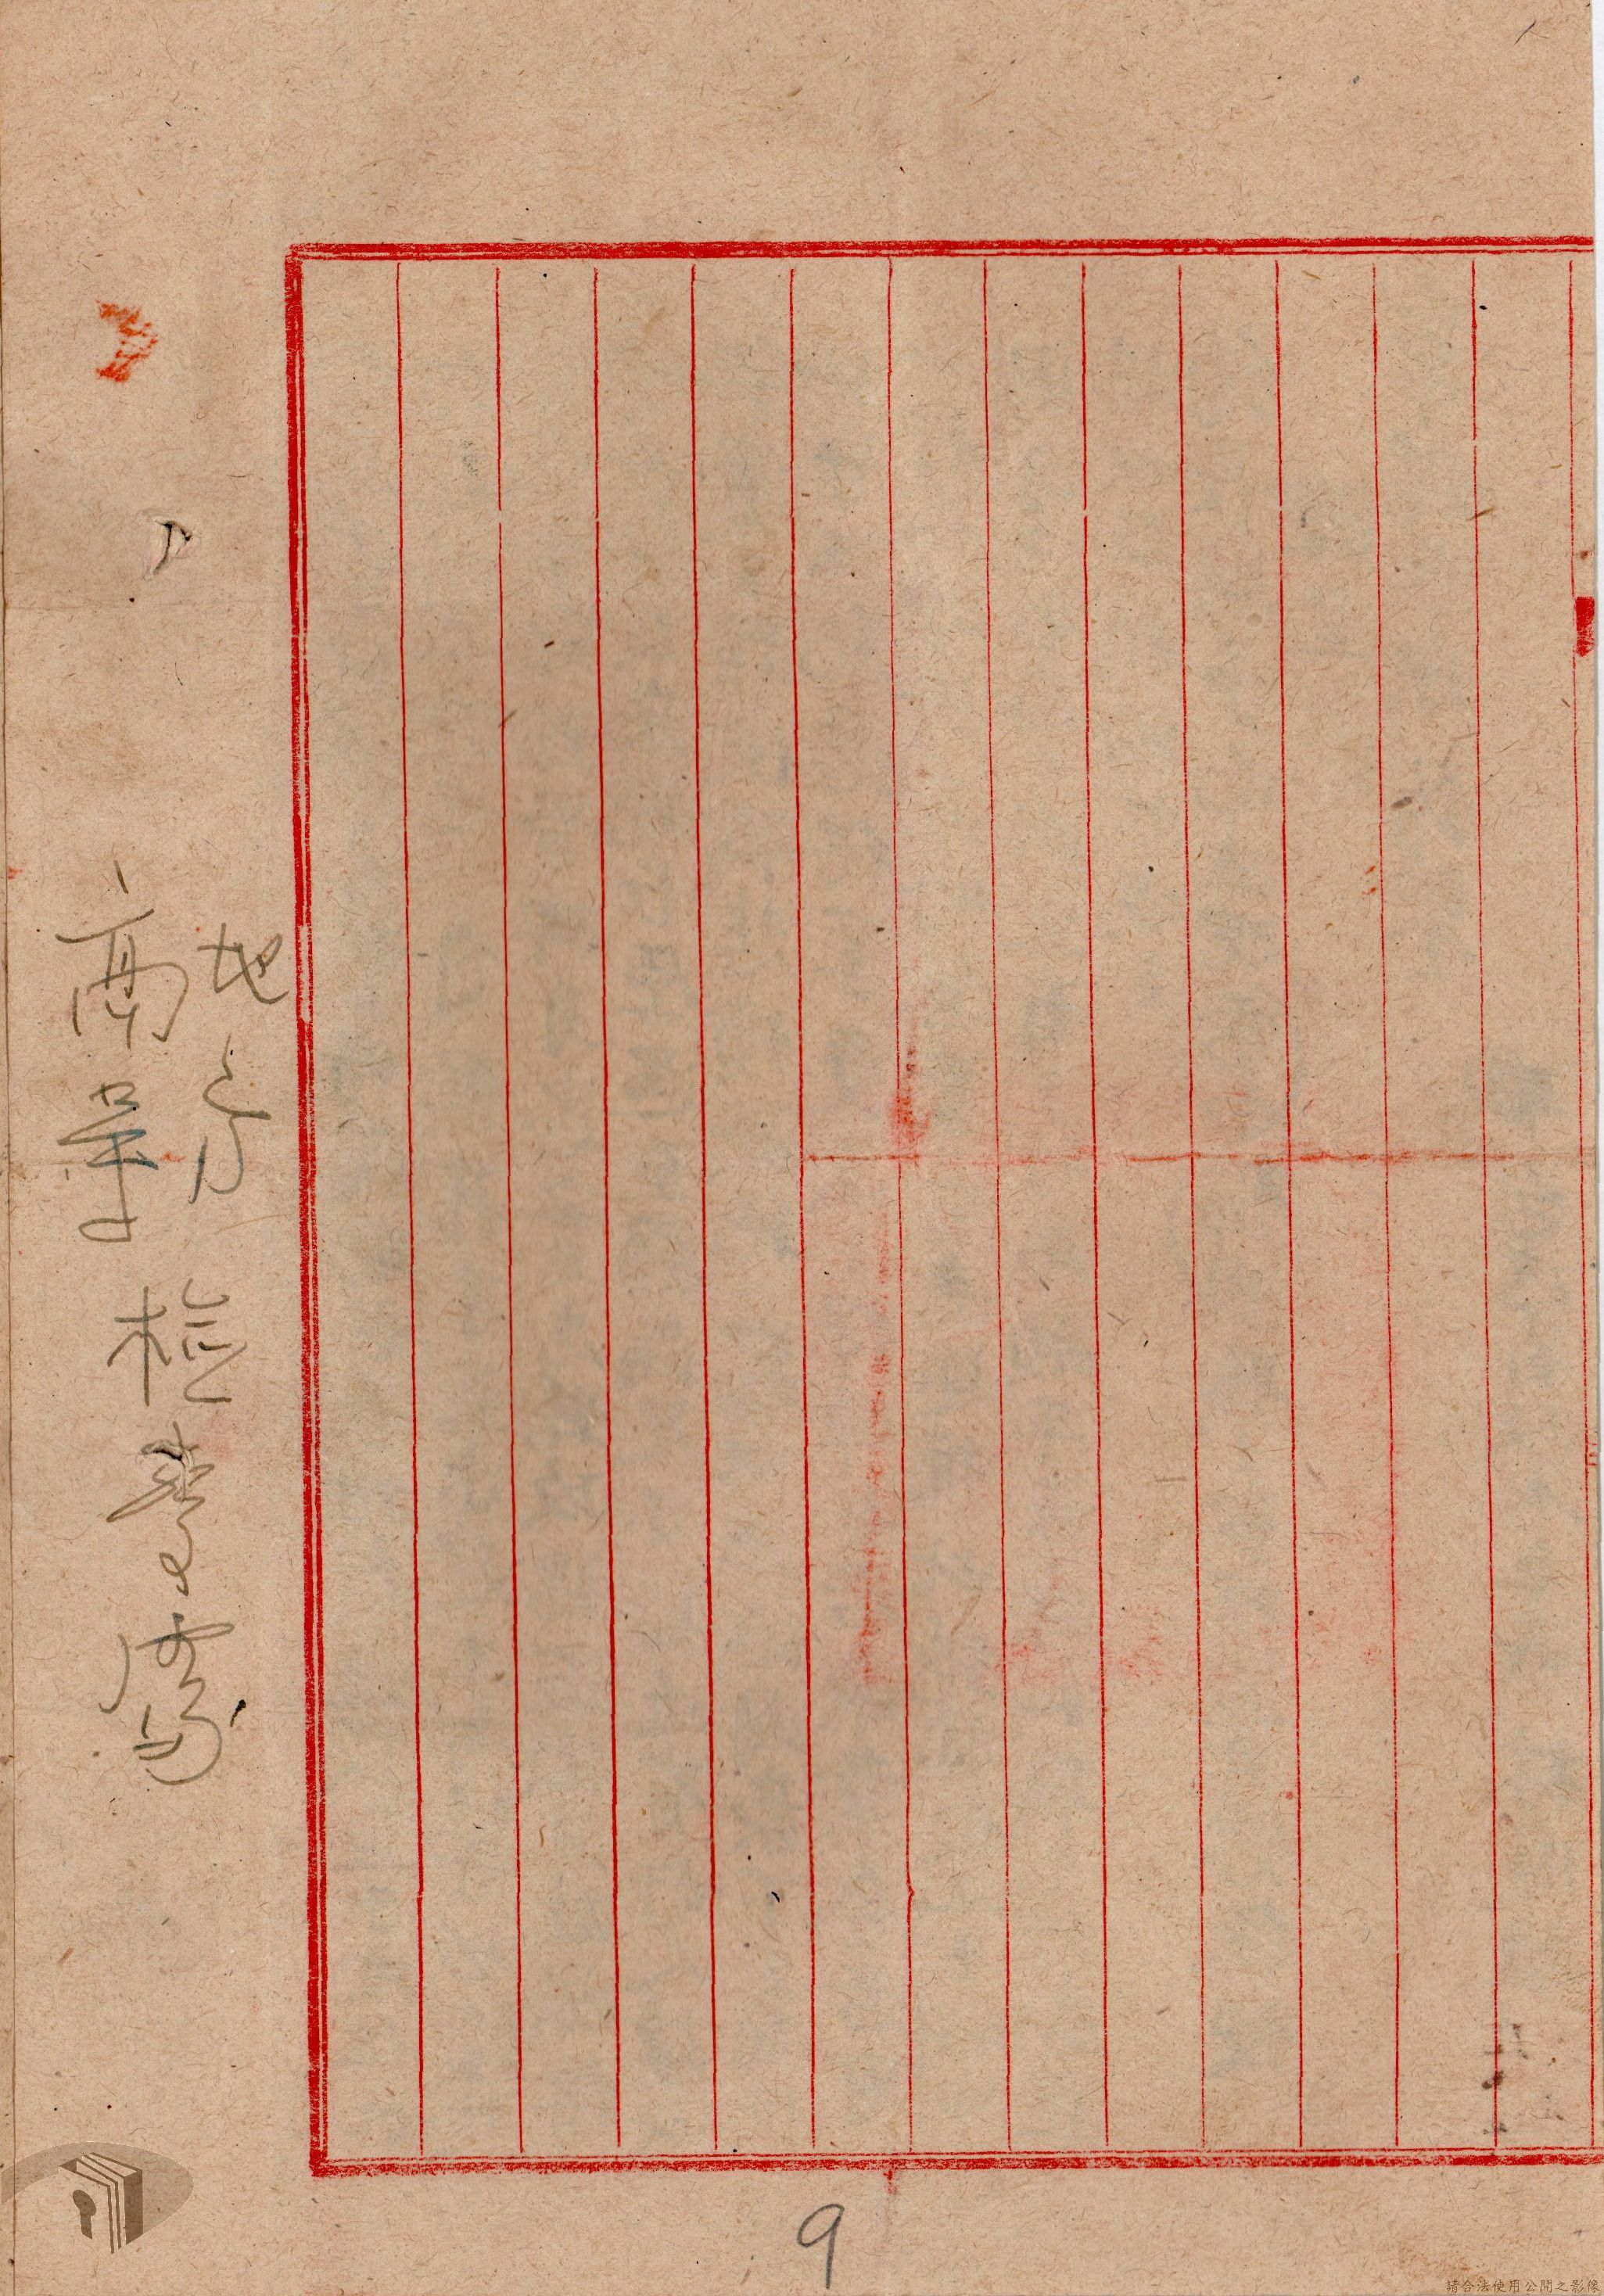 地方
高等
檢察處
9
請合法使用公開之影像